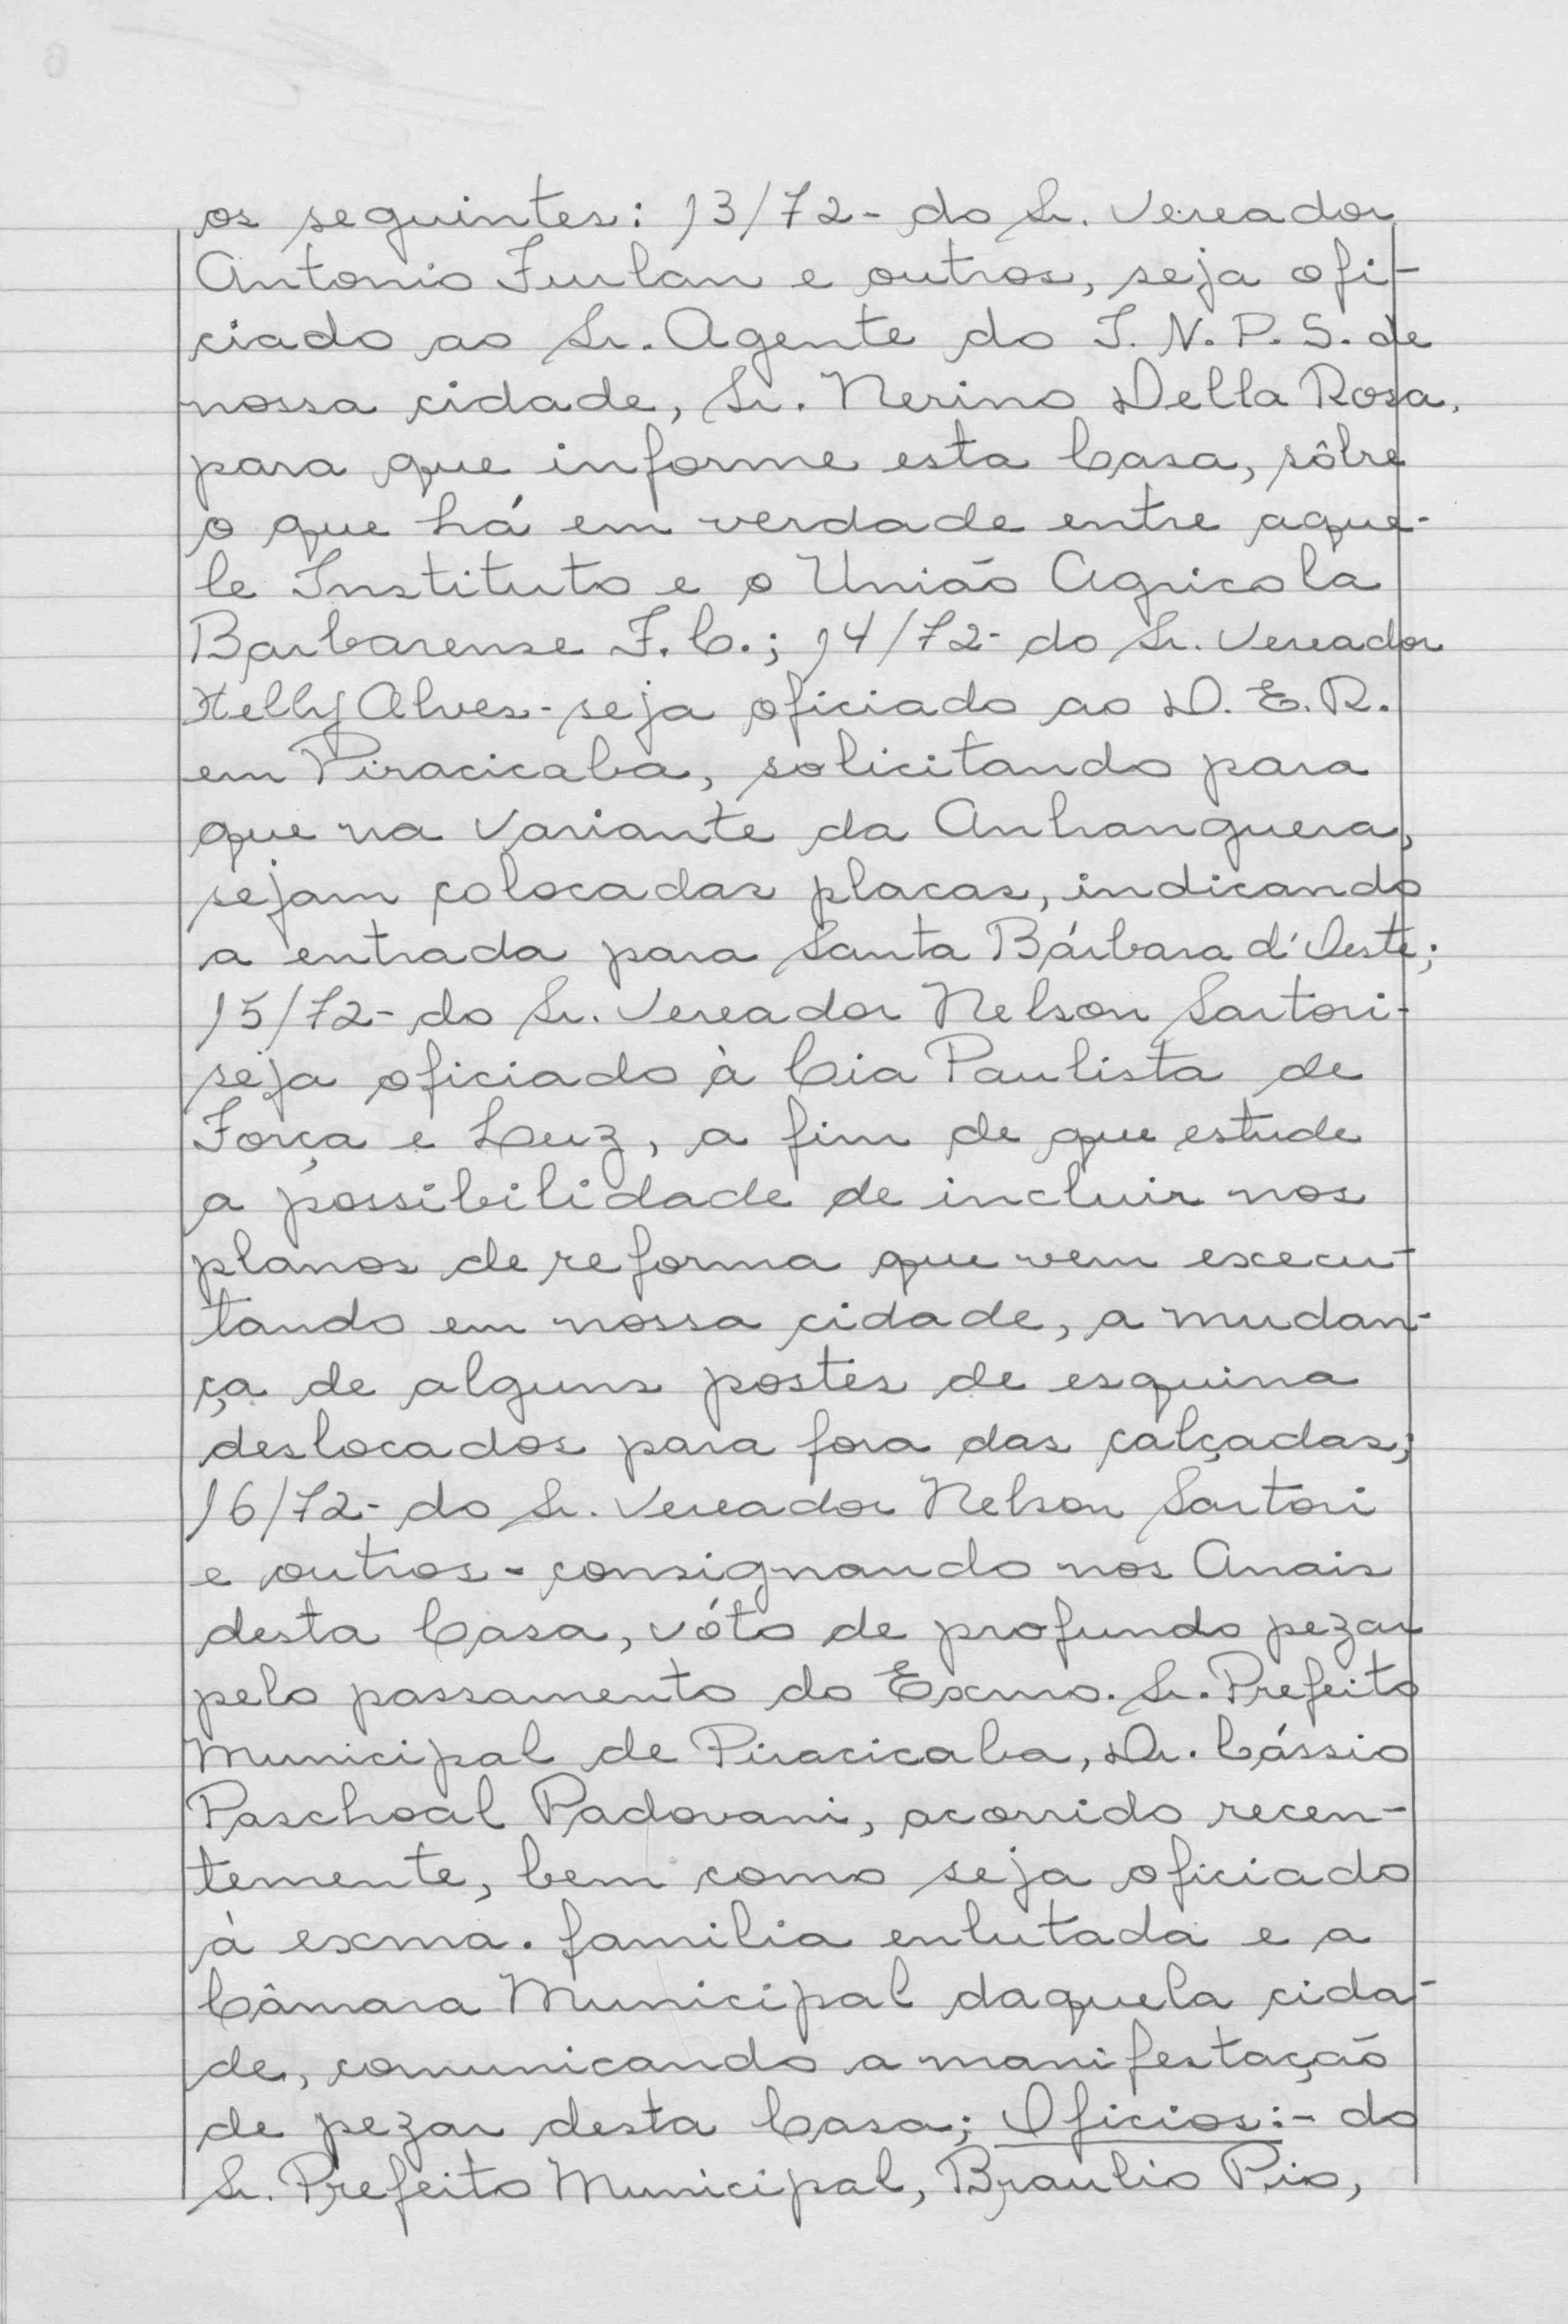 os seguintes: 13/72- do Sr. Vereador
Antonio Furlan e outros, seja ofi-
ciado ao Sr. Agente do I. N. P. S. de
nossa cidade, Sr. Nerino Della Rosa,
para que informe esta Casa, sôbre
o que há em verdade entre aque-
le Instituto e o União Agricola
Barbarense F. C.; 14/72- do Sr. Vereador
Kelly Alves- seja oficiado ao D. E. R.
em Piracicaba, solicitando para
que na variante da Anhanguera,
sejam colocadas placas, indicando
a entrada para Santa Bárbara d'Oeste;
15/72- do Sr. Vereador Nelson Sartori-
seja oficiado à Cia Paulista de
Força e Luz, a fim de que estude
a possibilidade de incluir nos
planos de reforma que vem execu-
tando em nossa cidade, a mudan-
ça de alguns postes de esquina
deslocados para fora das calçadas;
16/72- do Sr. Vereador Nelson Sartori
e outros - consignando nos Anais
desta Casa, vóto de profundo pezar
pelo passamento do Exmo. Sr. Prefeito
Municipal de Piracicaba, Dr. Cássio
Paschoal Padovani, acorrido recen-
temente, bem como seja oficiado
à exma. familia enlutada e a
Câmara Municipal daquela cida-
de, comunicando a manifestação
de pezar desta Casa; Oficios:- do
Sr. Prefeito Municipal, Braulio Pio,